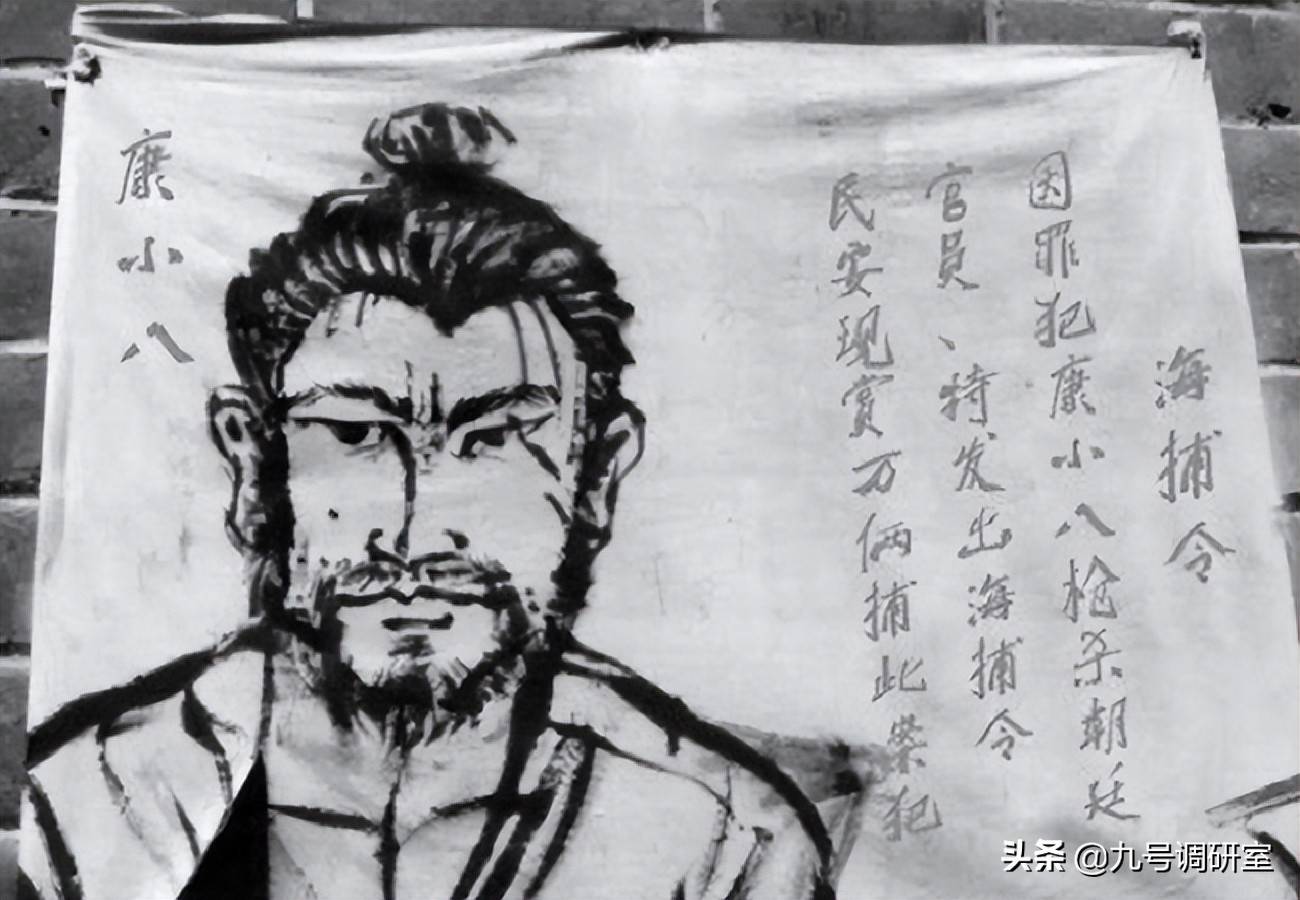 海捕令
因罪犯康小八枪杀朝廷
官员、特发出海捕令
民安现赏万俩捕此犯
康小八
头条 @九号调研室